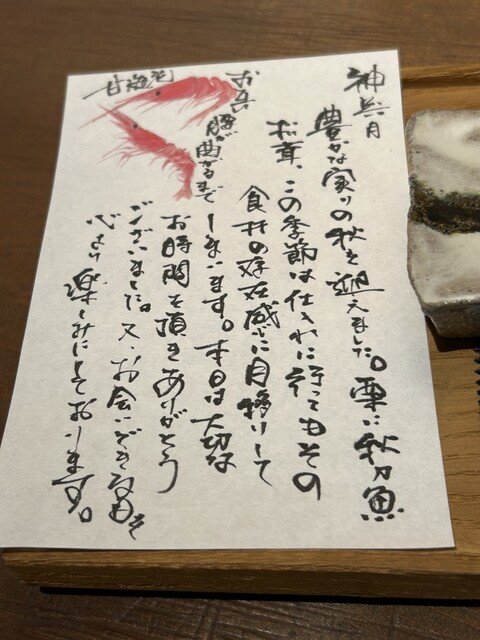 神無月
豊かな実りの秋を迎えました。栗に秋刀魚
松茸、この季節は仕入れに行ってもその
食材の存在感に目移りして
しまいます。本日は大切な
お時間を頂きありがとう
ございました。又、お会いできる日を
心より楽しみにしております。
お互い
腰が
曲がるまで
甘海老